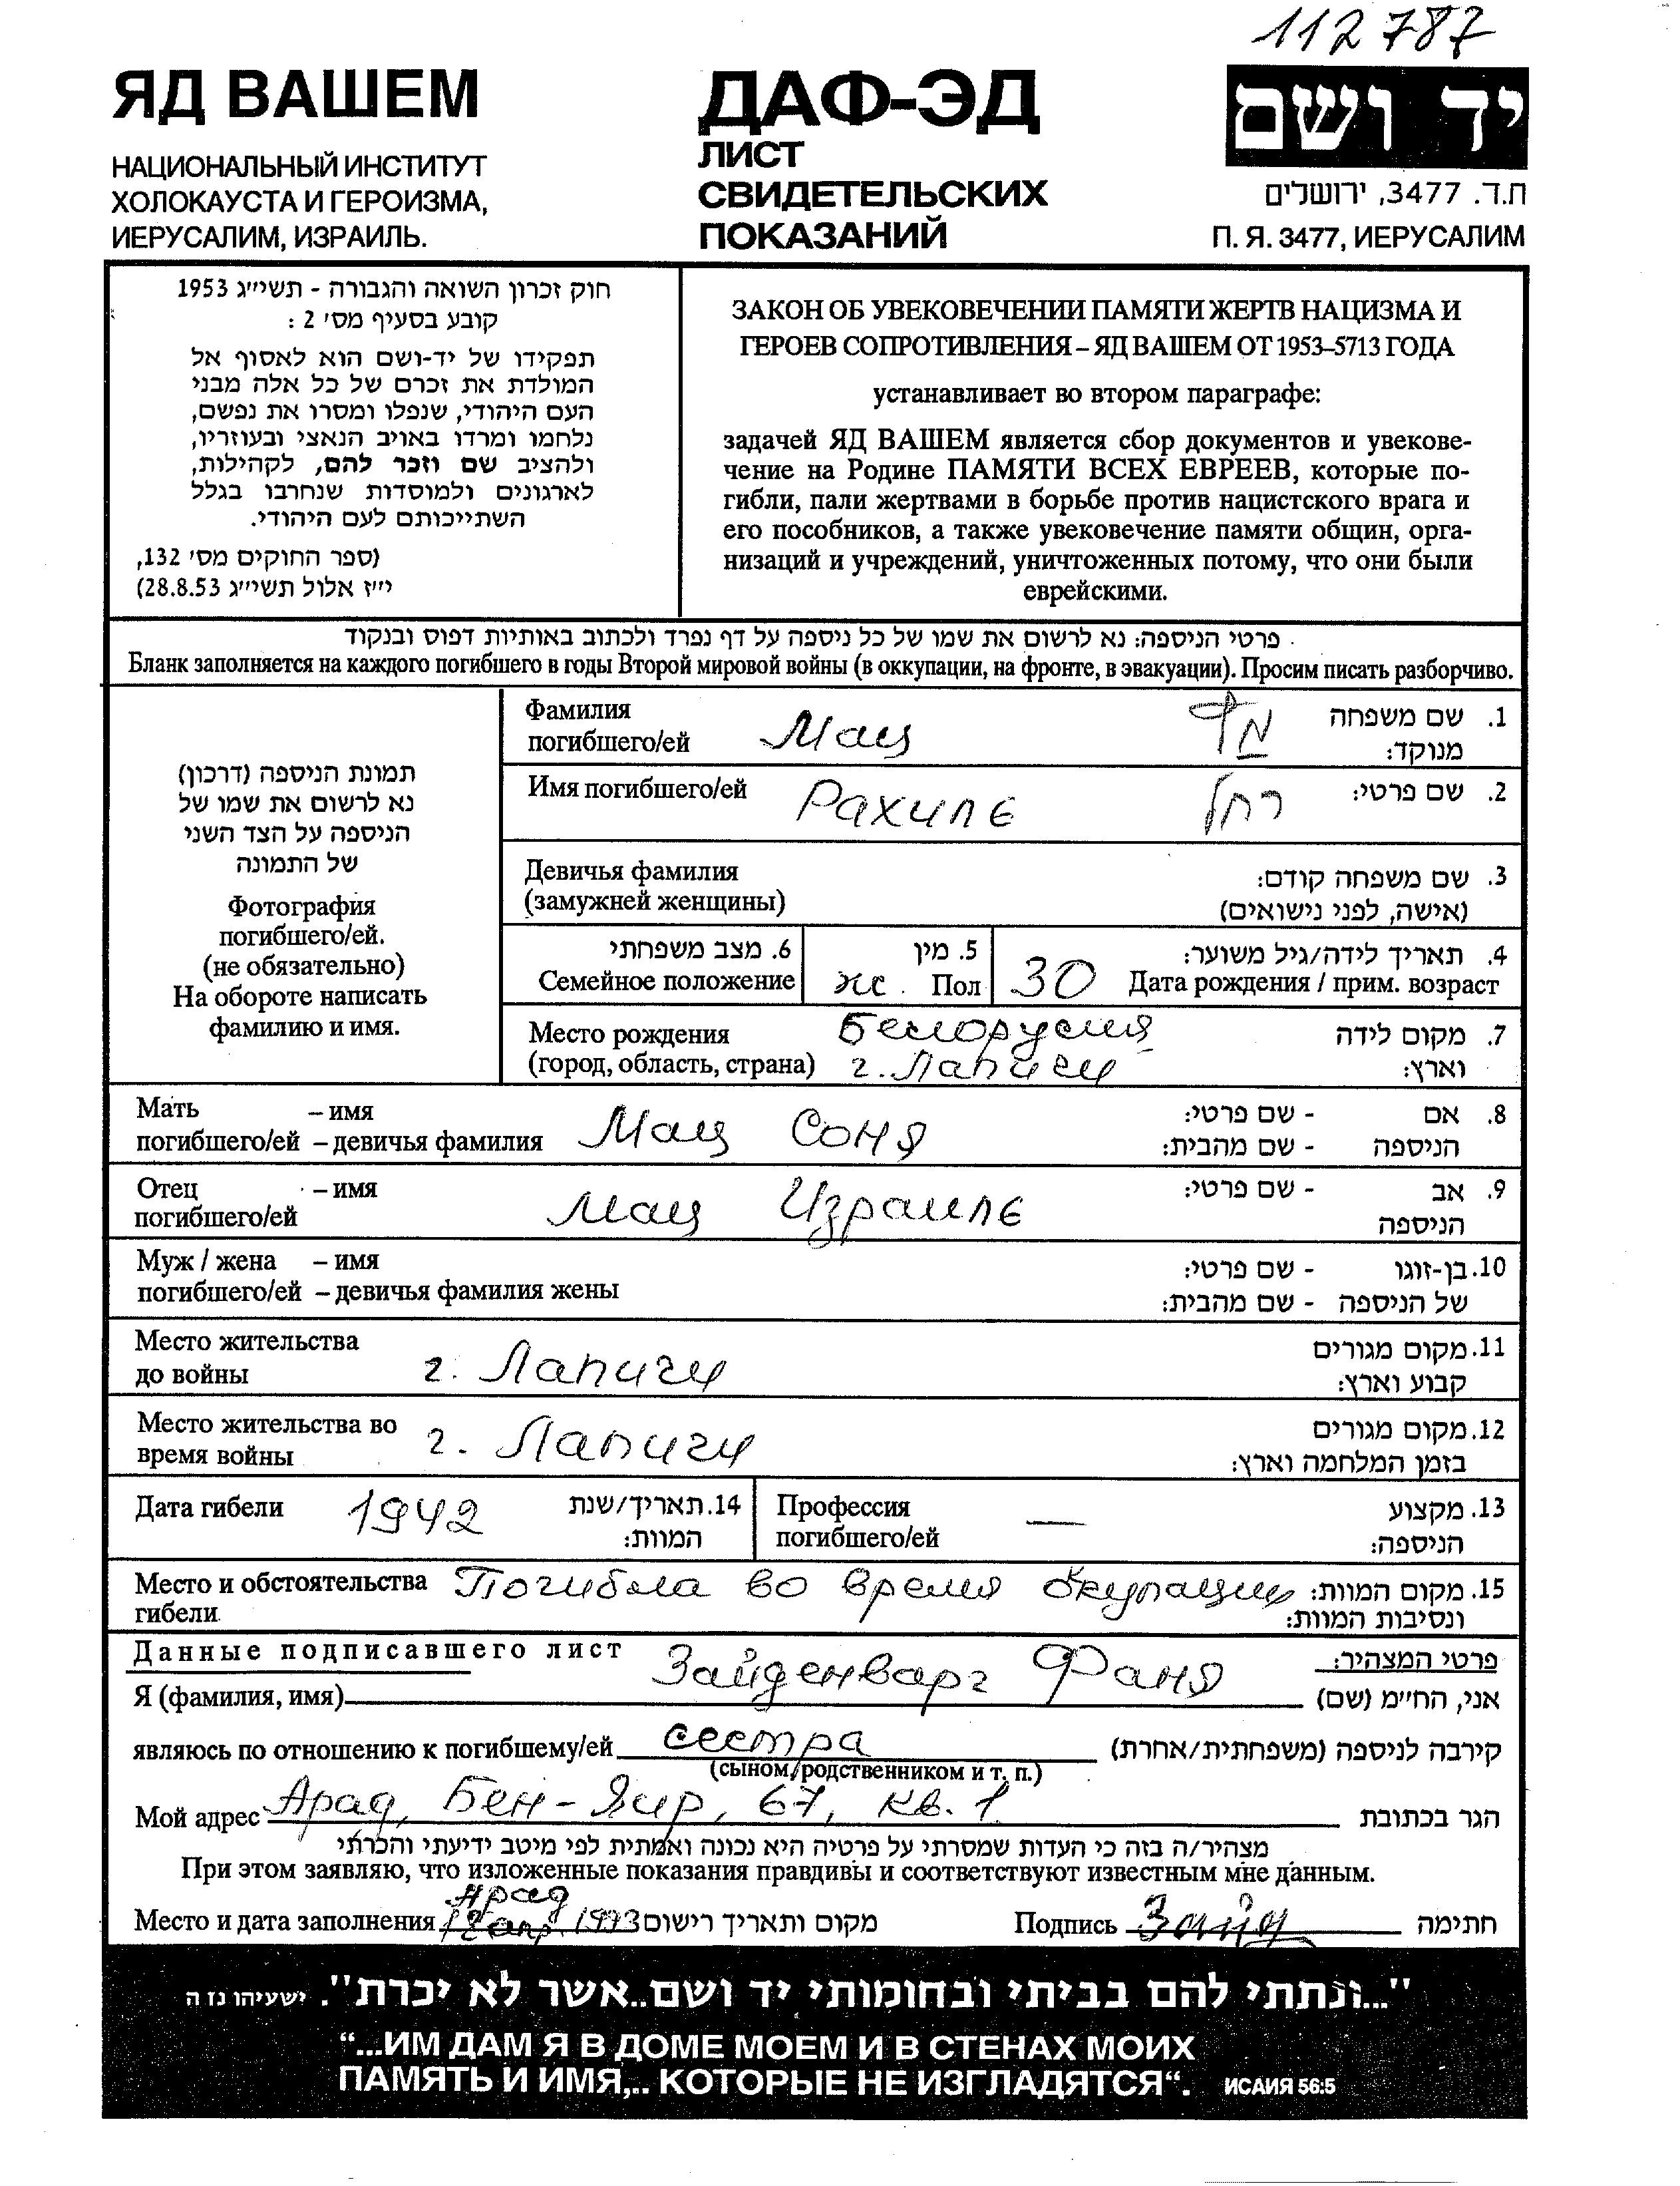 112787
ЯД ВАШЕМ
НАЦИОНАЛЬНЫЙ ИНСТИТУТ
ХОЛОКАУСТА И ГЕРОИЗМА,
ИЕРУСАЛИМ, ИЗРАИЛЬ.
ДАФ-ЭД
ЛИСТ
СВИДЕТЕЛЬСКИХ
ПОКАЗАНИЙ
יד ושם
ת.ד. 3477, ירושלים
П. Я. 3477, ИЕРУСАЛИМ
חוק זכרון השואה והגבורה - תשי״ג 1953
קובע בסעיף מס׳ 2 :
תפקידו של יד-ושם הוא לאסוף אל
המולדת את זכרם של כל אלה מבני
העם היהודי, שנפלו ומסרו את נפשם,
נלחמו ומרדו באויב הנאצי ובעוזריו,
ולהציב שם וזכר להם, לקהילות,
לארגונים ולמוסדות שנחרבו בגלל
השתייכותם לעם היהודי.
(ספר החוקים מס׳ 132,
י״ז אלול תשי״ג 28.8.53)
ЗАКОН ОБ УВЕКОВЕЧЕНИИ ПАМЯТИ ЖЕРТВ НАЦИЗМА И
ГЕРОЕВ СОПРОТИВЛЕНИЯ – ЯД ВАШЕМ ОТ 1953–5713 ГОДА
устанавливает во втором параграфе:
задачей ЯД ВАШЕМ является сбор документов и увекове-
чение на Родине ПАМЯТИ ВСЕХ ЕВРЕЕВ, которые по-
гибли, пали жертвами в борьбе против нацистского врага и
его пособников, а также увековечение памяти общин, орга-
низаций и учреждений, уничтоженных потому, что они были
еврейскими.
פרטי הניספה: נא לרשום את שמו של כל ניספה על דף נפרד ולכתוב באותיות דפוס ובנקוד
Бланк заполняется на каждого погибшего в годы Второй мировой войны (в оккупации, на фронте, в эвакуации). Просим писать разборчиво.
תמונת הניספה (דרכון)
נא לרשום את שמו של
הניספה על הצד השני
של התמונה
Фотография
погибшего/ей.
(не обязательно)
На обороте написать
фамилию и имя.
Фамилия
погибшего/ей Мац
1. שם משפחה
מנוקד:
Имя погибшего/ей Рахиль רחל 2. שם פרטי:
Девичья фамилия
(замужней женщины)
3. שם משפחה קודם:
(אישה, לפני נישואים)
6. מצב משפחתי
Семейное положение
5. מין
ж. Пол
4. תאריך לידה/גיל משוער:
30 Дата рождения / прим. возраст
Место рождения Белорусия
(город, область, страна) г. Лапичи
7. מקום לידה
וארץ:
Мать – имя
погибшего/ей – девичья фамилия Мац Соня
8. אם - שם פרטי:
הניספה - שם מהבית:
Отец – имя
погибшего/ей Мац Израиль
9. אב - שם פרטי:
הניספה
Муж / жена – имя
погибшего/ей – девичья фамилия жены
10. בן-זוגו - שם פרטי:
של הניספה - שם מהבית:
Место жительства
до войны г. Лапичи
11. מקום מגורים
קבוע וארץ:
Место жительства во
время войны г. Лапичи
12. מקום מגורים
בזמן המלחמה וארץ:
Дата гибели 1942
14. תאריך/שנת
המוות:
Профессия
погибшего/ей —
13. מקצוע
הניספה:
Место и обстоятельства Погибла во время окупации
гибели
15. מקום המוות:
ונסיבות המוות:
Данные подписавшего лист
פרטי המצהיר:
Я (фамилия, имя) Зайденварг Фаня אני, החי״מ (שם)
являюсь по отношению к погибшему/ей сестра קירבה לניספה (משפחתית/אחרת)
(сыном, родственником и т. п.)
Мой адрес Арад, Бен-Яир, 67, кв. 1 הגר בכתובת
מצהיר/ה בזה כי העדות שמסרתי על פרטיה היא נכונה ואמתית לפי מיטב ידיעתי והכרתי
При этом заявляю, что изложенные показания правдивы и соответствуют известным мне данным.
Арад
Место и дата заполнения апр. 1993 מקום ותאריך רישום
Подпись Зайд חתימה
"...ונתתי להם בביתי ובחומותי יד ושם..אשר לא יכרת". ישעיהו נז ה
“...ИМ ДАМ Я В ДОМЕ МОЕМ И В СТЕНАХ МОИХ
ПАМЯТЬ И ИМЯ,.. КОТОРЫЕ НЕ ИЗГЛАДЯТСЯ“. ИСАИЯ 56:5